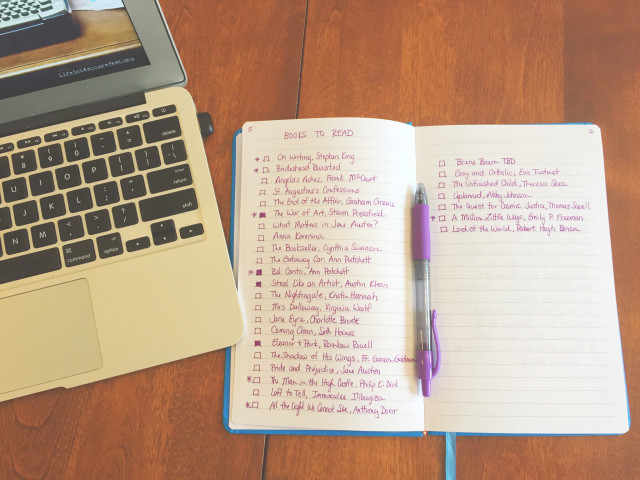 Lifein64squarefeet.com
8
9
0
delete
U
I
O
P
return
J
K
L
enter
shift
N
M
command
option
BOOKS TO READ
On Writing, Stephen King
Brideshead Revisited
Angela's Ashes, Frank McCourt
St Augustine's Confessions
The End of the Affair, Graham Greene
The War of Art, Steven Pressfield
What Matters in Jane Austen?
Anna Karenina
The Bookseller, Cynthia Swanson
The Getaway Car, Ann Patchett
Bel Canto, Ann Patchett
Steal Like an Artist, Austin Kleon
The Nightingale, Kristin Hannah
Mrs. Dalloway, Virginia Woolf
Jane Eyre, Charlotte Bronte
Coming Clean, Seth Haines
Eleanor & Park, Rainbow Rowell
The Shadow of His Wings, Fr. Goldmann
Pride and Prejudice, Jane Austen
The Man in the High Castle, Philip K. Dick
Left to Tell, Immaculee Ilibagiza
All the Light We Cannot See, Anthony Doerr
Brene Brown TBD
Gay and Catholic, Eve Tushnet
The Unfinished Child, Theresa Shea
Unplanned, Abby Johnson
The Quest for Cosmic Justice, Thomas Sowell
A Million Little Ways, Emily P. Freeman
Lord of the World, Robert Hugh Benson